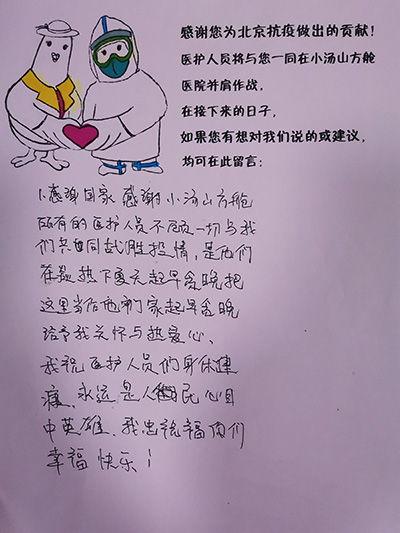 感谢您为北京抗疫做出的贡献！
医护人员将与您一同在小汤山方舱
医院并肩作战，
在接下来的日子，
如果您有想对我们说的或建议，
均可在此留言：
1.感谢国家 感谢小汤山方舱
所有的医护人员不顾一切与我
们共同战胜役情，是他们
在热下夏天起早贪晚把
这里当做他们家起早贪晚
给予我关怀与热爱心、
我祝医护人员们身体建
康、永远是人民心目
中英雄、我忠祝福你们
幸福快乐！